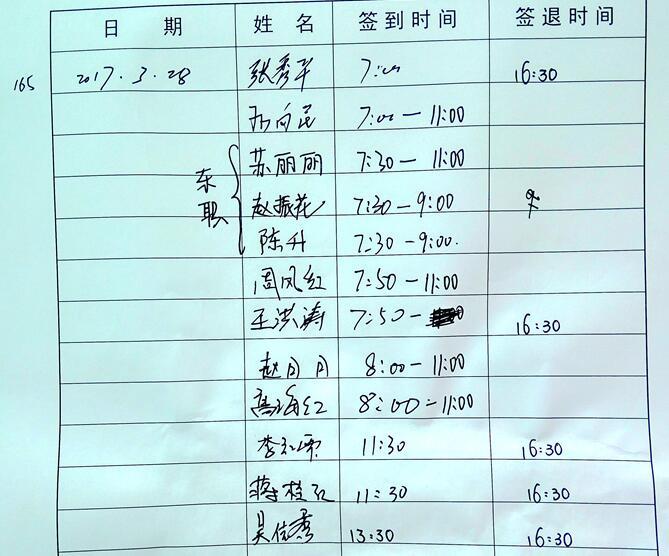 日 期 姓 名 签到时间 签退时间
165 2017.3.28 张秀平 7:00 16:30
7:00 — 11:00
东职 苏丽丽 7:30 — 11:00
赵振花 7:30 — 9:00
陈升 7:30 — 9:00.
周凤红 7:50 — 11:00
王洪涛 7:50 — 16:30
赵月月 8:00 — 11:00
高海红 8:00 — 11:00
11:30 16:30
蒋桂红 11:30 16:30
吴佳秀 13:30 16:30